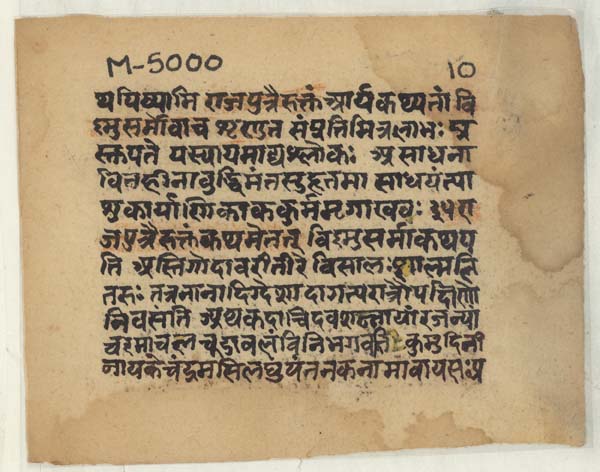 M-5000 10
थयिष्यामि राजपुत्रैरुक्तं आर्यकथ्यतां वि
ष्मुसर्मोवाच शृणुत संप्रतिमित्रलाभः प्र
स्तूयते यस्यायमाद्यश्लोकः असाधना
वित्तहीनाबुद्धिमंतसुहृत्तमा साधयंत्या
शुकार्याणिकाककूर्ममृगाखवः रा
जपुत्रैरुक्तंकथमेतत् विष्मुसर्माकथय
ति अस्तिगोदावरीतीरे विसालः शाल्मलि
तरुः तत्रनानादिग्देशादागत्यरात्रौपक्षिणो
निवसति अथकदाचिदवशन्नायांरजन्यां
चरमाचलचूडावलंविनिभगवति कुमुदिनी
नायकेचंद्रमसिलघुपतनकनामावायसःप्र